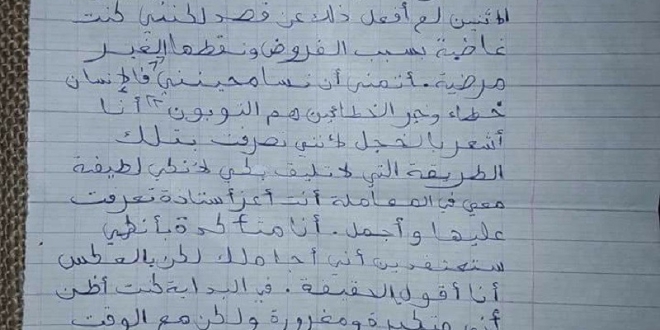 الاثنين لم أفعل ذلك عن قصد لكنني كنت
غاضبة بسبب الفروض ونقطها الغير
مرضية. أتمنى أن تسامحينني "فالإنسان
خطاء وخير الخطائين هم التوبون" أنا
أشعر بالخجل لأنني تصرفت بتلك
الطريقة التي لا تليق بكي لأنكي لطيفة
معي في المعاملة أنت أعز أستادة تعرفت
عليها وأجمل. أنا متأكدة بأنكي
ستعتقدين أني أجاملك لكن بالعكس
أنا أقول الحقيقة. في البداية كنت أظن
أنكي متكبرة ومغرورة ولكن مع الوقت